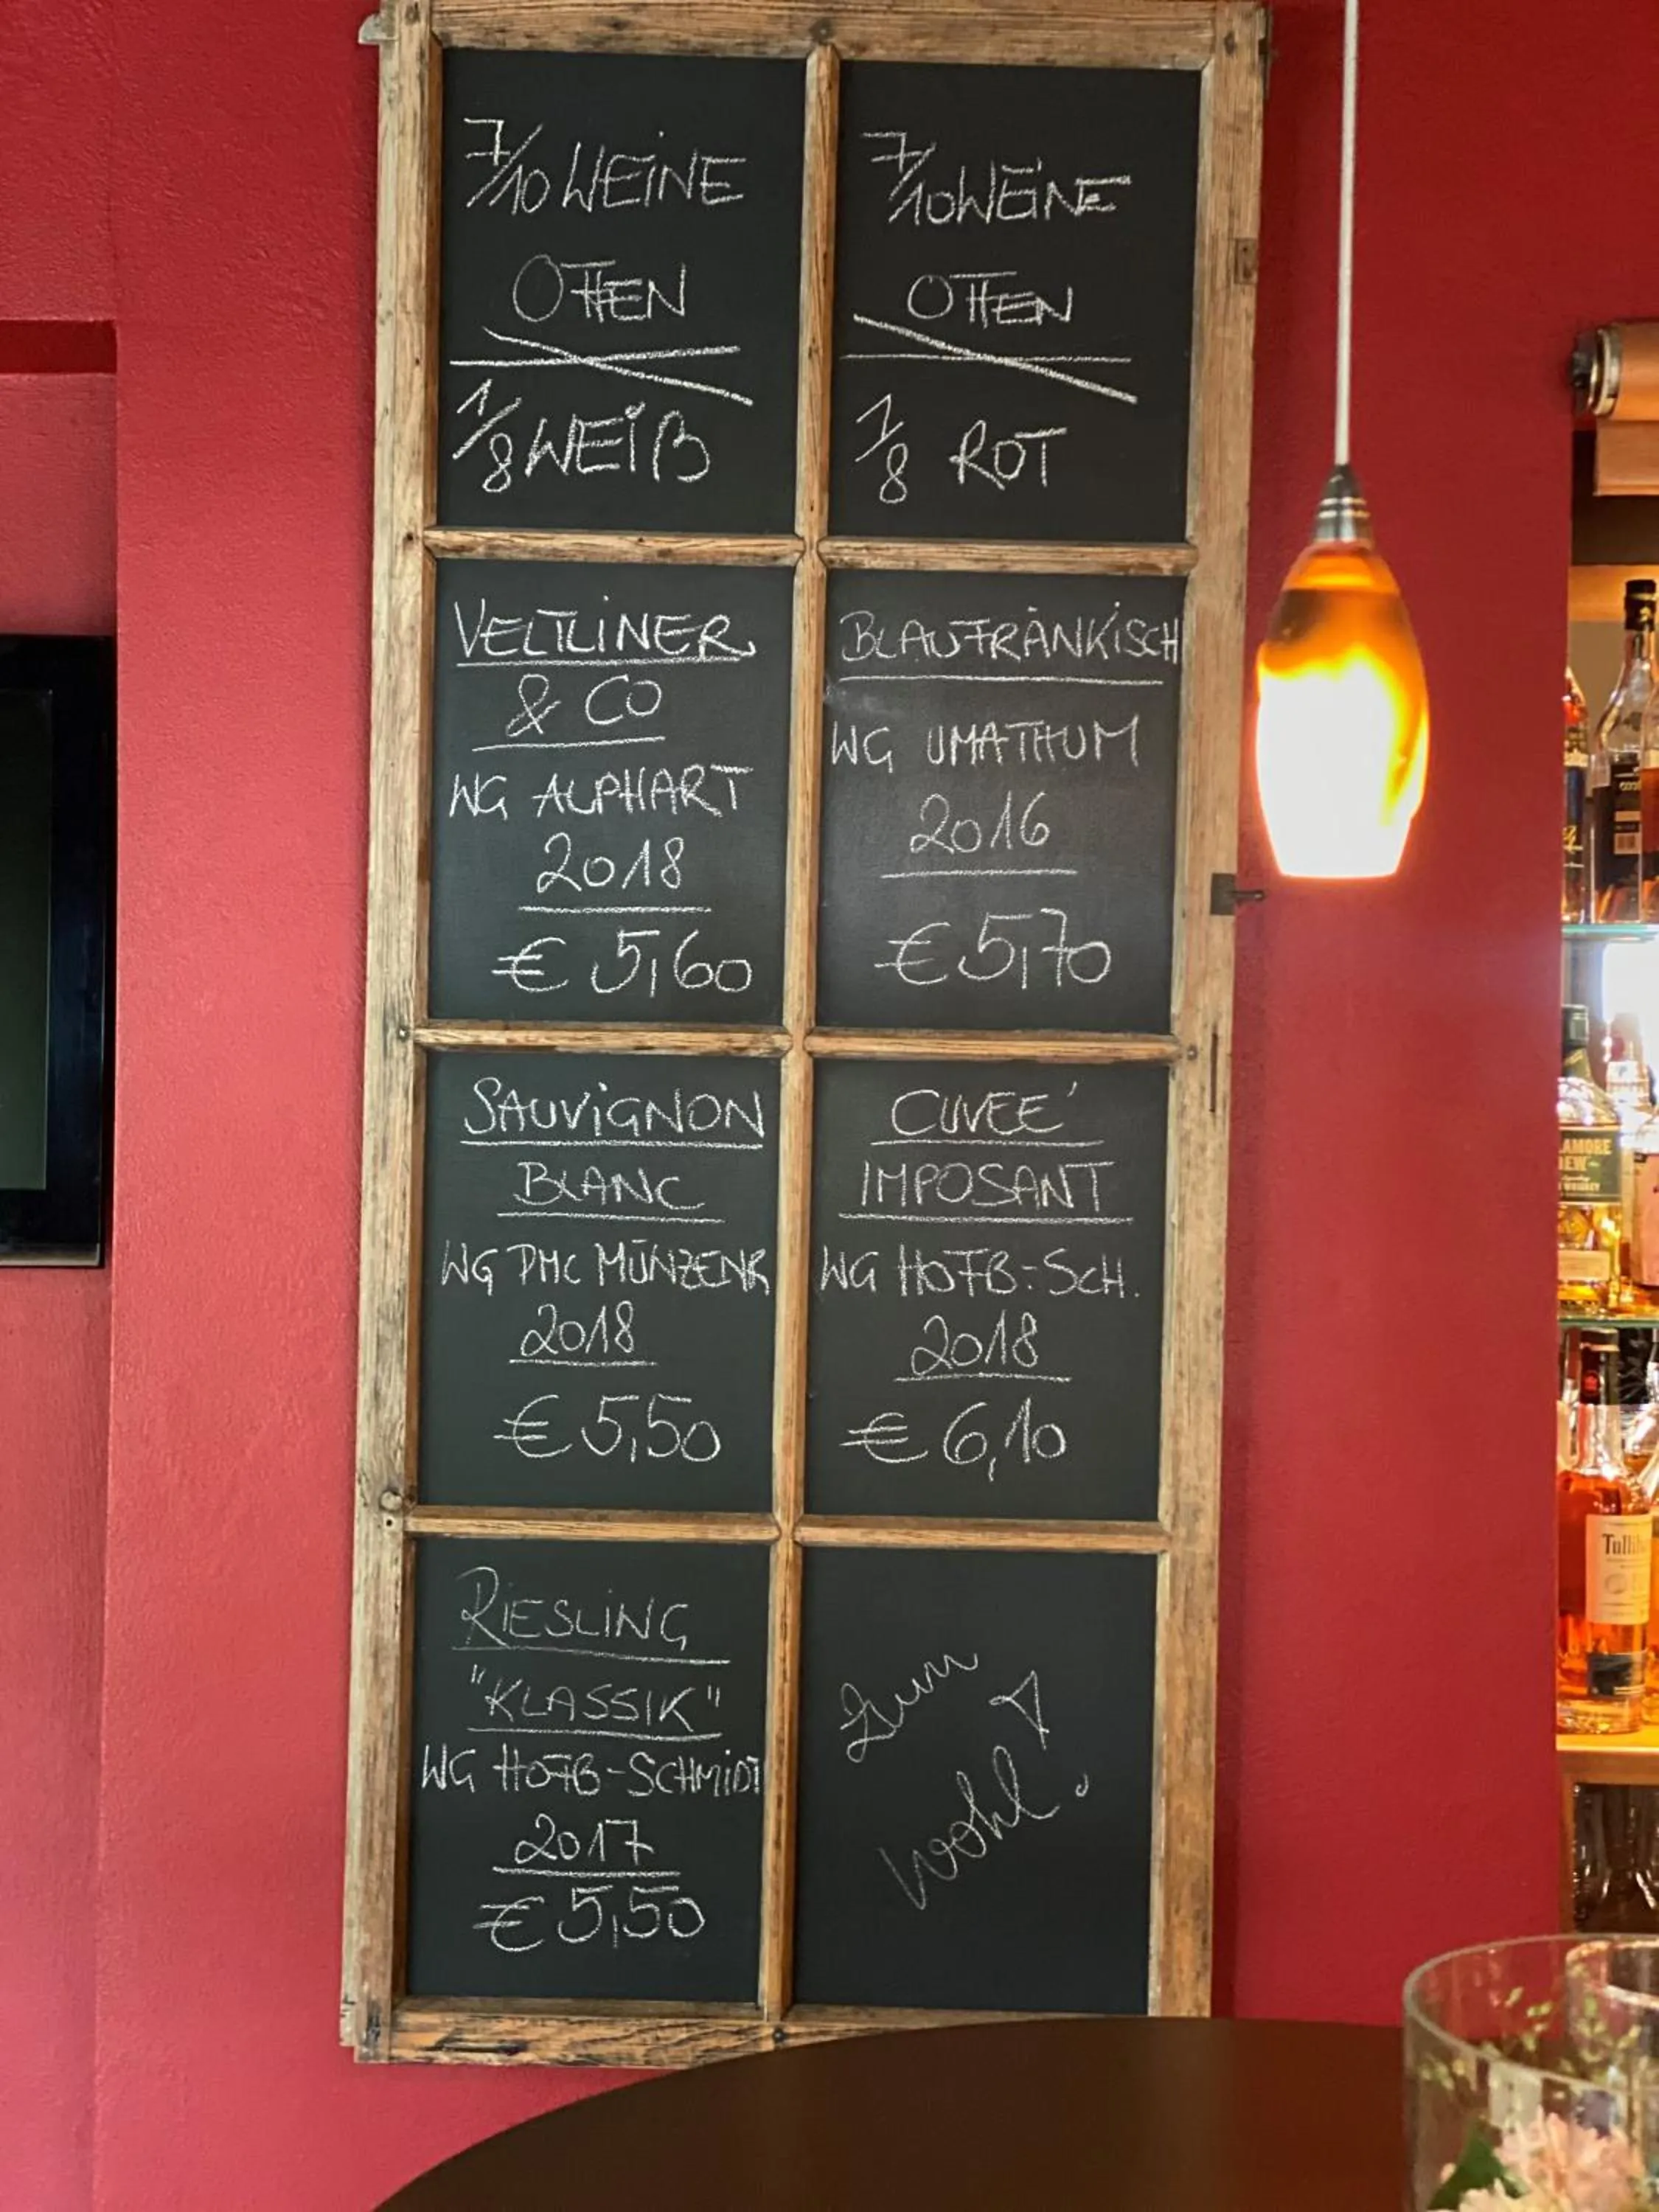 7/10 WEiNE
OFFEN
1/8 WEiß
7/10 WEiNE
OFFEN
1/8 ROT
VELTLiNER
& CO
WG ALPHART
2018
€ 5,60
BLAUFRÄNKiSCH
WG UMATHUM
2016
€ 5,70
SAUViGNON
BLANC
WG PMC MÜNZENR
2018
€ 5,50
CUVEE´
IMPOSANT
WG HOFB.-SCH.
2018
€ 6,10
RiESLiNG
"KLASSIK"
WG HOFB-SCHMiDT
2017
€ 5,50
Zum
Wohl!
AMORE
DEW
WHISKEY
Tulli